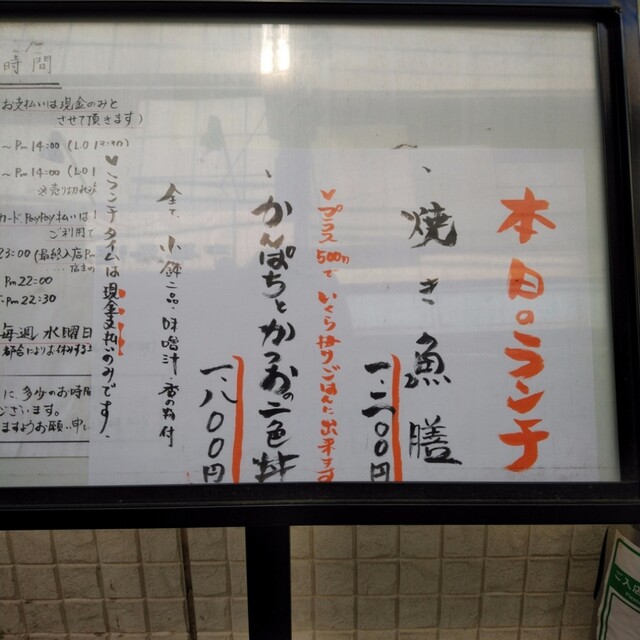 本日のランチ
、焼き魚膳
一、二〇〇円
♥プラス500円でいくら掛けごはんに出来ます
、かんぱちとかつおの二色丼
一、八〇〇円
全て小鉢二品・味噌汁・香の物付
♥ランチタイムは現金支払いのみです。
時間
お支払いは現金のみと
させて頂きます)
～Pm14:00 (L.O 13:30)
～Pm14:00 (L.O 1
※売り切れ
カード PayPay払いは
ご利用で
23:00 (最終入店P
Pm22:00
Pm22:30
毎週 水曜日
都合によりお休みする
に、多少のお時間
ございます。
ますようお願い申し